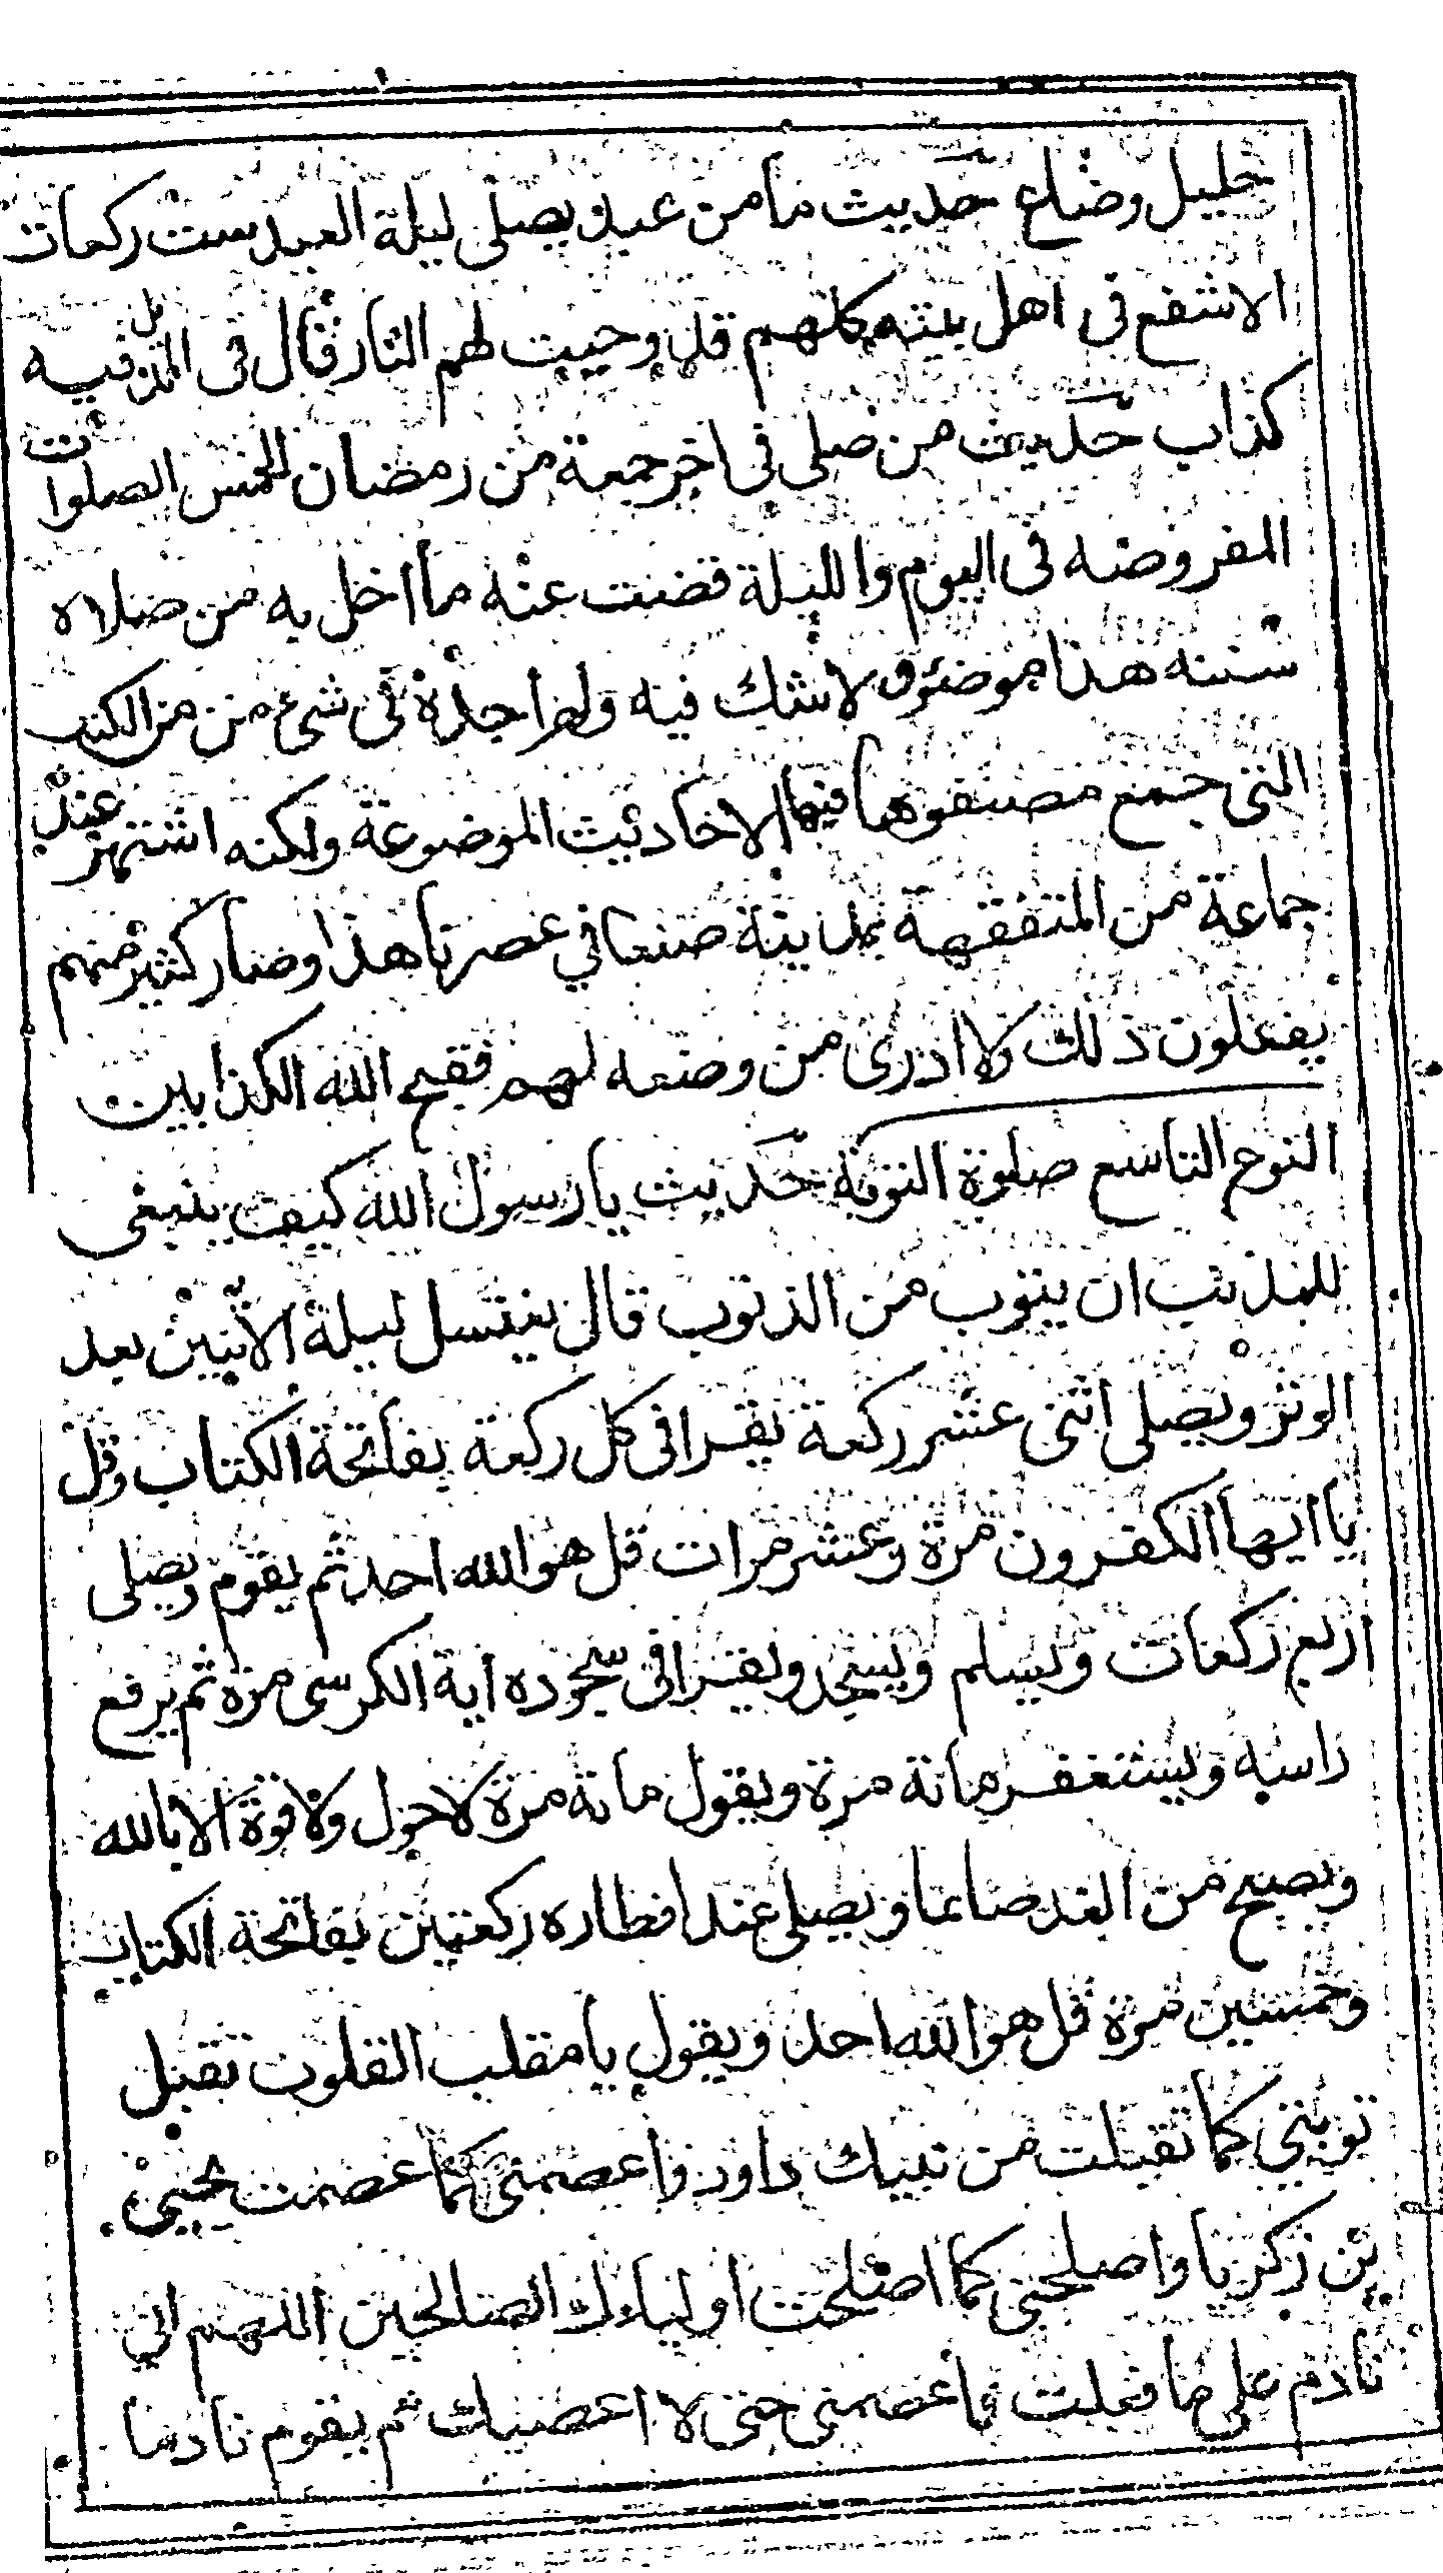 خليل وضاع حديث ما من عبد يصلى ليلة العيد ست ركعات
الا شفع فى اهل بيته كلهم قد وجبت لهم النار قال فى الذيل فيه
كذاب حديث من صلى فى اخر جمعة من رمضان الخمس الصلوات
المفروضه فى اليوم والليلة قضت عنه ما اخل به من صلاه
سنته هذا موضوع لا شك فيه ولم اجده فى شىء من من الكتب
التى جمع مصنفوها فيها الاحاديث الموضوعة ولكنه اشتهر عند
جماعة من المتفقهة بمدينة صنعا في عصرنا هذا وصار كثير منهم
يفعلون ذلك ولا ادرى من وضعه لهم فقبح الله الكذابين
النوع التاسع صلوة التوبة حديث يا رسول الله كيف ينبغى
للمذنب ان يتوب من الذنوب قال يغتسل ليلة الاثنين بعد
الوتر ويصلى اثنى عشر ركعة يقرا فى كل ركعة بفاتحة الكتاب وقل
يا ايها الكفرون مرة وعشر مرات قل هو الله احد ثم يقوم ويصلى
اربع ركعات ويسلم ويسجد ويقرا فى سجوده اية الكرسى مرة ثم يرفع
راسه ويستغفر مائة مرة ويقول مائة مرة لا حول ولا قوة الا بالله
ويصبح من الغد صائما ويصلى عند افطاره ركعتين بفاتحة الكتاب
وخمسين مرة قل هو الله احد ويقول يا مقلب القلوب تقبل
توبتى كما تقبلت من نبيك داود واعصمنى كما عصمت يحيى
بن زكريا واصلحنى كما اصلحت اولياءك الصالحين اللهم انى
نادم على ما فعلت فاعصمنى حتى لا اعصيك ثم يقوم نادما